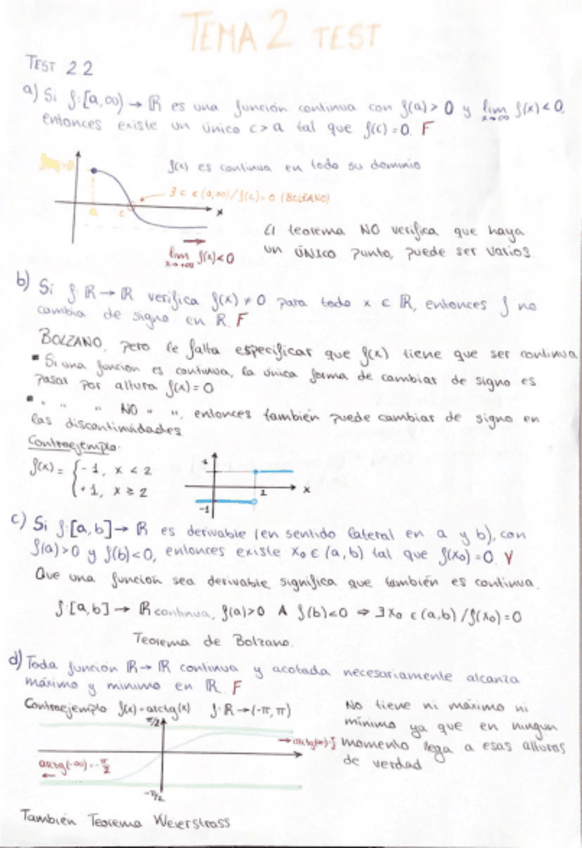 TEMA 2 TEST
TEST 2.2
a) Si f:[a,∞) → ℝ es una función continua con f(a) > 0 y lim x→∞ f(x) < 0,
entonces existe un único c > a tal que f(c) = 0. F
f(x) es continua en todo su dominio
∃ c ∈ (a,∞) / f(c) = 0 (BOLZANO)
a
c
x
lim x→+∞ f(x) < 0
El teorema NO verifica que haya
un ÚNICO punto, puede ser varios
b) Si f: ℝ → ℝ verifica f(x) ≠ 0 para todo x ∈ ℝ, entonces f no
cambia de signo en ℝ. F
BOLZANO, pero le falta especificar que f(x) tiene que ser continua
▪ Si una función es continua, la única forma de cambiar de signo es
pasar por altura f(x) = 0
▪ " " " NO " ", entonces también puede cambiar de signo en
las discontinuidades
Contraejemplo.
f(x) = { -1, x < 2
+1, x ≥ 2
1
2
x
-1
c) Si f:[a,b] → ℝ es derivable (en sentido lateral en a y b), con
f(a) > 0 y f(b) < 0, entonces existe x₀ ∈ (a,b) tal que f(x₀) = 0. V
Que una función sea derivable significa que también es continua.
f:[a,b] → ℝ continua, f(a) > 0 ∧ f(b) < 0 ⇒ ∃ x₀ ∈ (a,b) / f(x₀) = 0
Teorema de Bolzano.
d) Toda función ℝ → ℝ continua y acotada necesariamente alcanza
máximo y mínimo en ℝ. F
Contraejemplo f(x) = arctg(x) f: ℝ → (-π, π)
π/2
arctg(-∞) = -π/2
-π/2
No tiene ni máximo ni
mínimo ya que en ningun
momento llega a esas alturas
de verdad
También Teorema Weierstrass